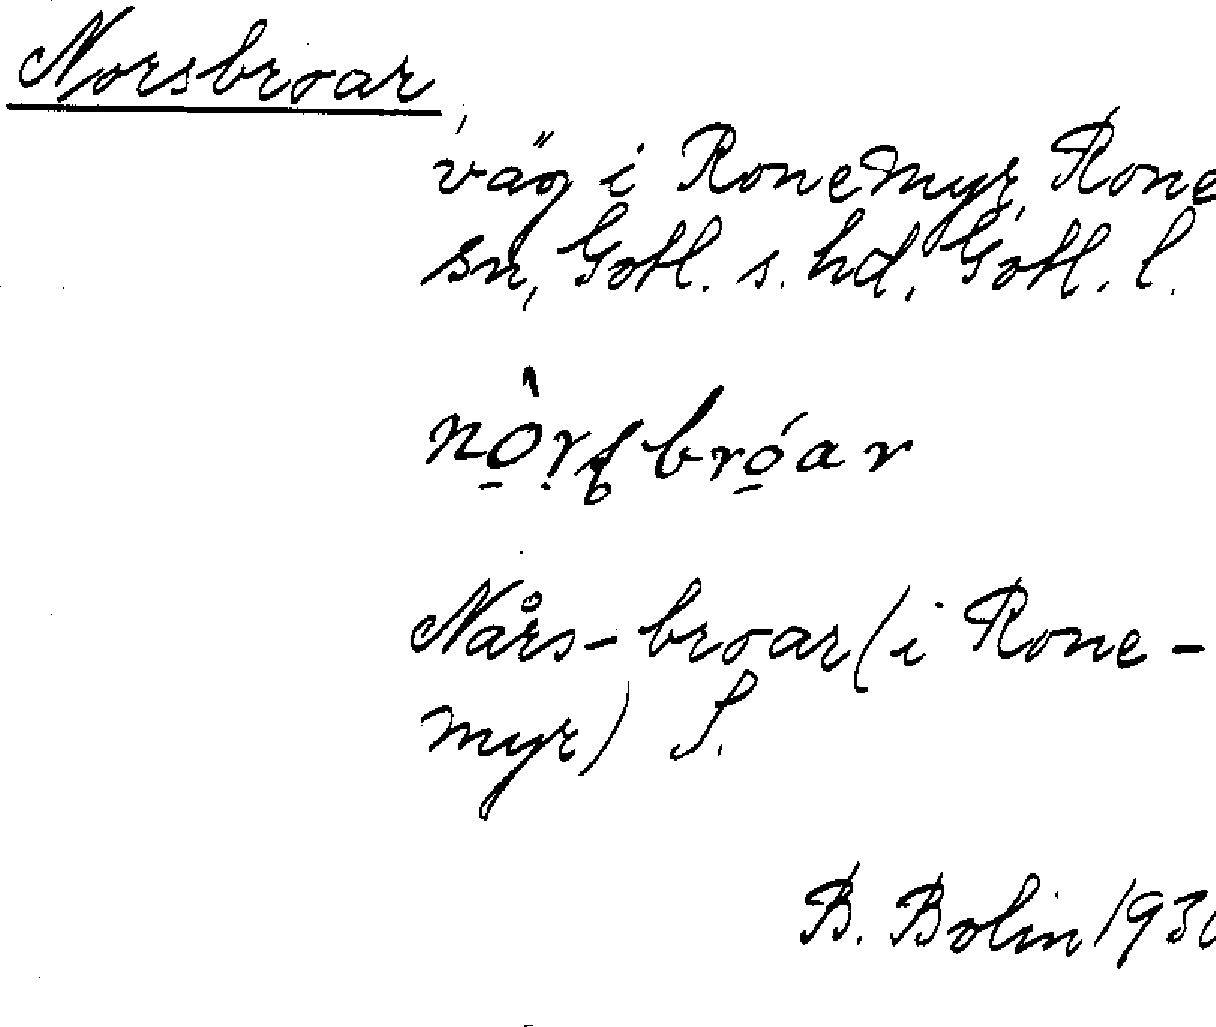 Norsbroar,
väg i Rone myr, Rone
sn, Gotl. s. hd, Gotl. l.
Nårs-broar (i Rone-
myr) S.
B. Bolin